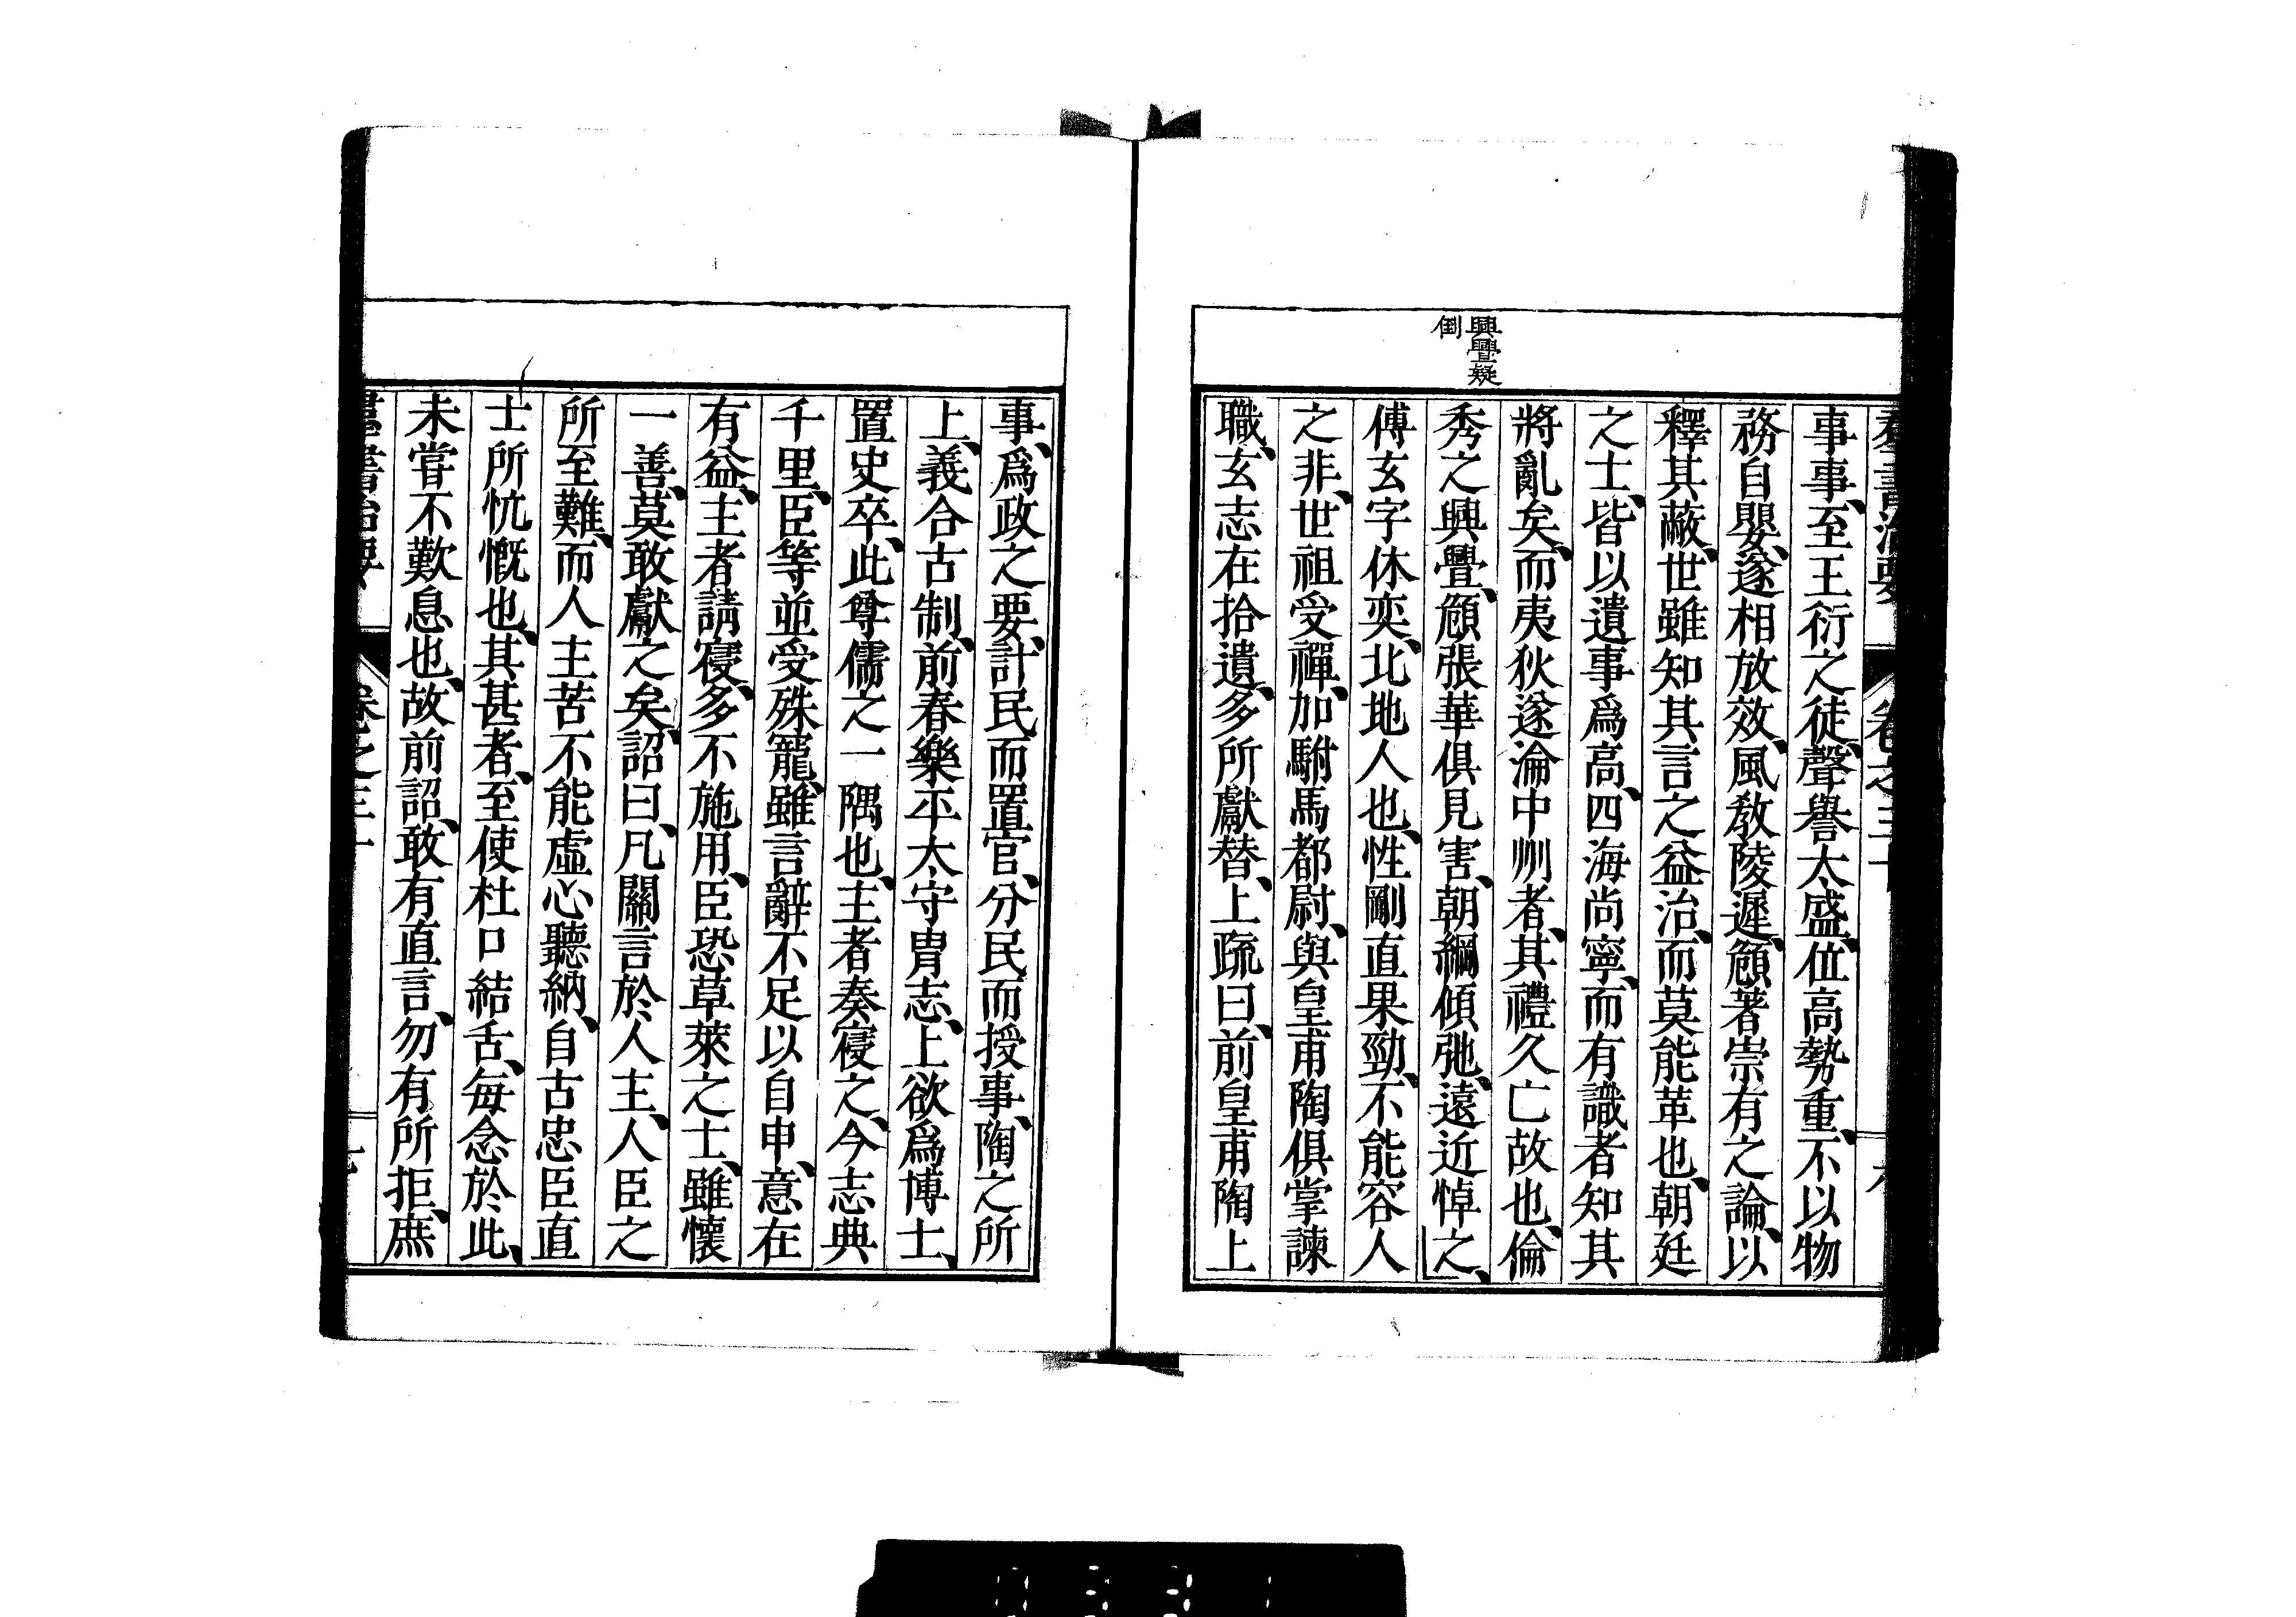 群書治要 卷之三十
事事、至王衍之徒、聲譽太盛、位高勢重、不以物
務自嬰、遂相放效、風教陵遲、頠著崇有之論、以
釋其蔽、世雖知其言之益治、而莫能革也、朝廷
之士、皆以遺事爲高、四海尚寧、而有識者知其
將亂矣、而夷狄遂淪中州者、其禮久亡故也、倫
秀之興舋、頠張華俱見害、朝綱傾弛、遠近悼之、
興舋疑
倒
傅玄字休奕、北地人也、性剛直果勁、不能容人
之非、世祖受禪、加駙馬都尉、與皇甫陶俱掌諫
職、玄志在拾遺、多所獻替、上疏曰、前皇甫陶上
事、爲政之要、計民而置官、分民而授事、陶之所
上、義合古制、前春樂平太守胄志、上欲爲博士、
置史卒、此尊儒之一隅也、主者奏寑之、今志典
千里、臣等並受殊寵、雖言辭不足以自申、意在
有益、主者請寑、多不施用、臣恐草萊之士、雖懷
一善、莫敢獻之矣、詔曰、凡關言於人主、人臣之
所至難、而人主苦不能虛心聽納、自古忠臣直
士所忼慨也、其甚者、至使杜口結舌、每念於此、
未甞不歎息也、故前詔、敢有直言、勿有所拒、庶
群書治要 卷之三十